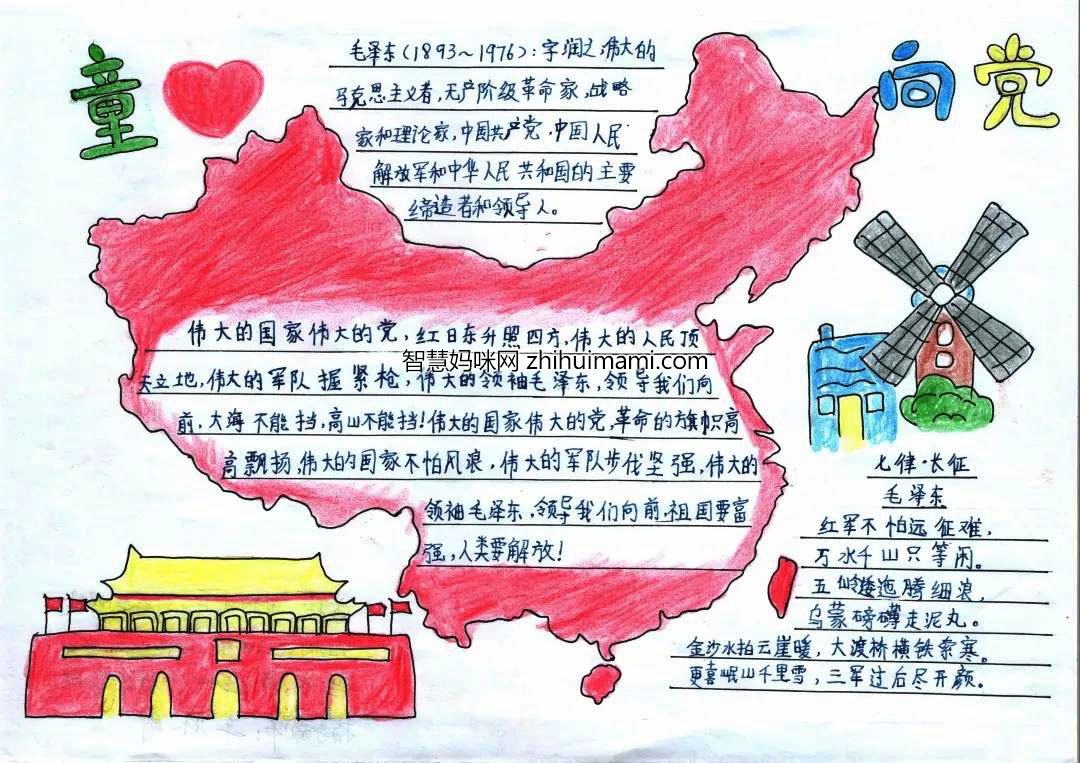 童 向党
毛泽东(1893~1976):字润之伟大的
马克思主义者,无产阶级革命家,战略
家和理论家,中国共产党.中国人民
解放军和中华人民共和国的主要
缔造者和领导人。
伟大的国家伟大的党,红日东升照四方,伟大的人民顶
天立地,伟大的军队握紧枪;伟大的领袖毛泽东,领导我们向
前,大海不能挡,高山不能挡!伟大的国家伟大的党,革命的旗帜高
高飘扬,伟大的国家不怕风浪,伟大的军队步伐坚强,伟大的
领袖毛泽东,领导我们向前,祖国要富
强,人类要解放!
智慧妈咪网 zhihuimami.com
七律·长征
毛泽东
红军不怕远征难,
万水千山只等闲。
五岭逶迤腾细浪,
乌蒙磅礴走泥丸。
金沙水拍云崖暖,大渡桥横铁索寒。
更喜岷山千里雪,三军过后尽开颜。